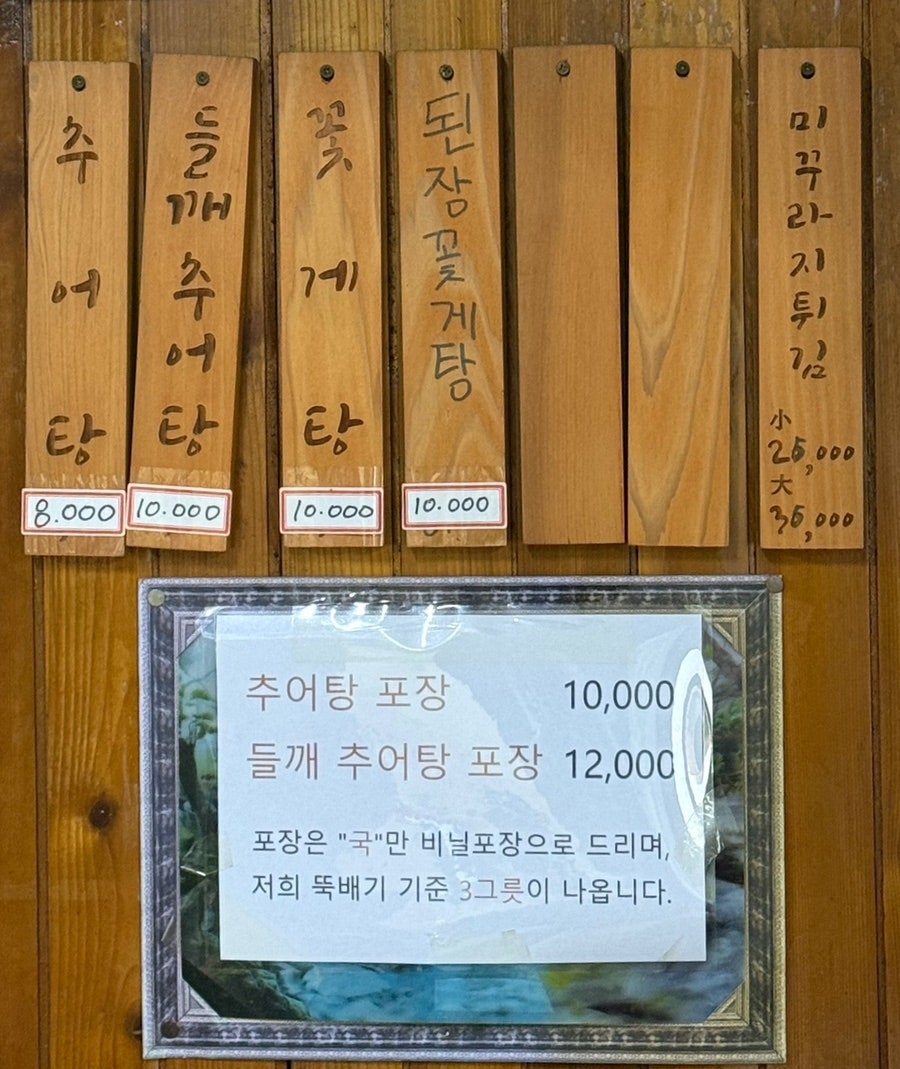 추어탕
8.000
들깨추어탕
10.000
꽃게탕
10.000
된장꽃게탕
10.000
미꾸라지튀김
小
25,000
大
35,000
추어탕 포장 10,000
들깨 추어탕 포장 12,000
포장은 "국"만 비닐포장으로 드리며,
저희 뚝배기 기준 3그릇이 나옵니다.